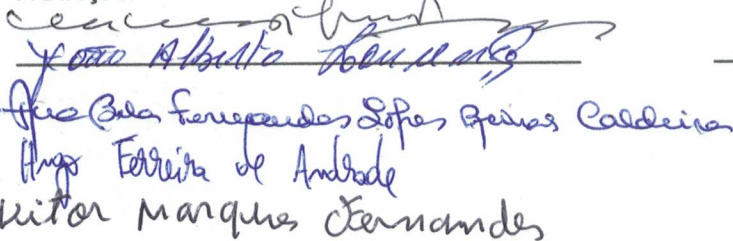 João Alberto Lourenço
Ana Fernandes Lopes Caldeira
Hugo Ferreira de Andrade
Vitor Marques Fernandes